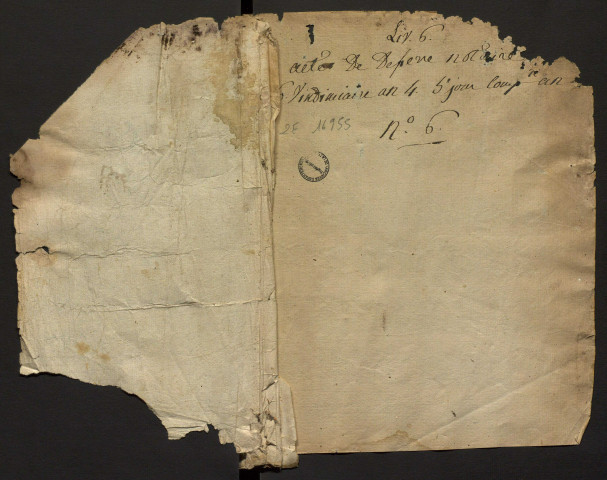 Liv. 6.
acte De Depeve notaire
6 Vindimiaire an 4. 5e jour Comp.re an
2E 16955
N.o 6.